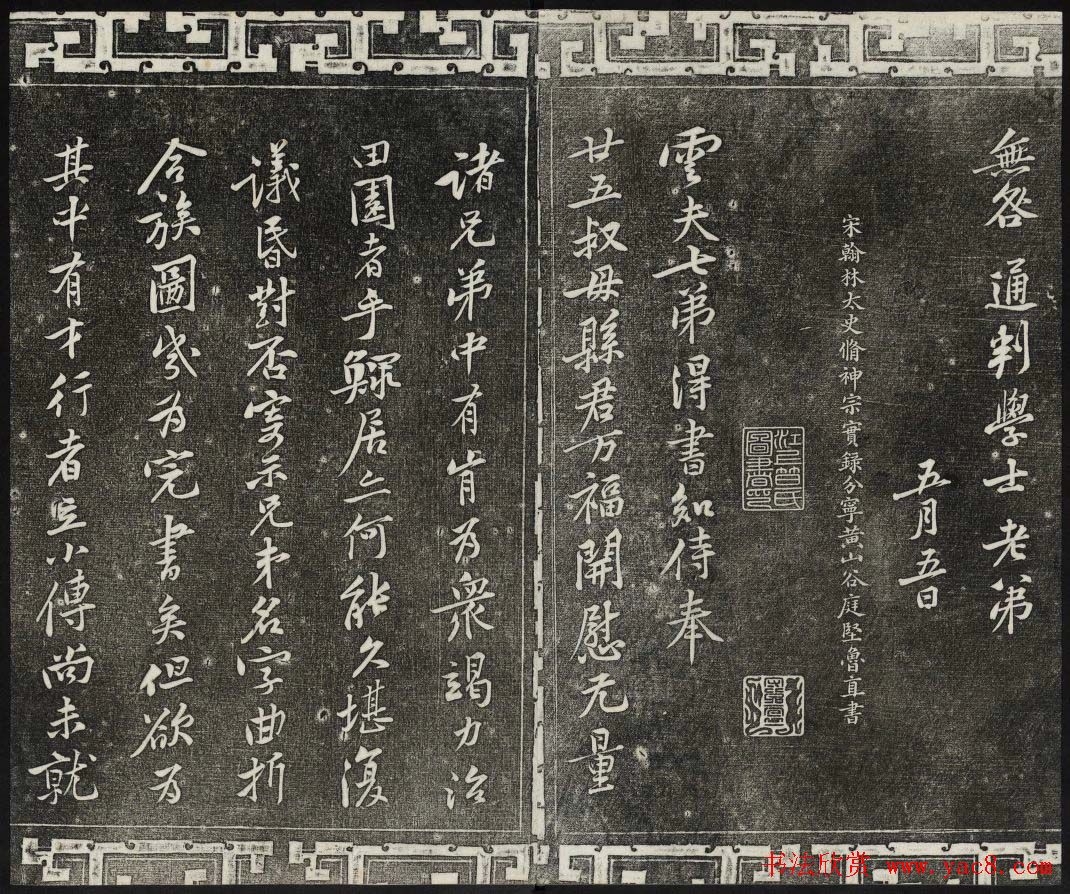 無咎 通判學士老弟
五月五日
宋翰林太史脩神宗實錄分寧黃山谷庭堅魯直書
雲夫七弟得書知侍奉
廿五叔母縣君万福開慰无量
諸兄弟中有肯为衆竭力治
田園者乎鰥居亦何能久堪復
議昏對否寄示兄弟名字曲折
合族圖幾为完書矣但欲为
其中有才行者立小傳尚未就
书法欣赏 www.yac8.com